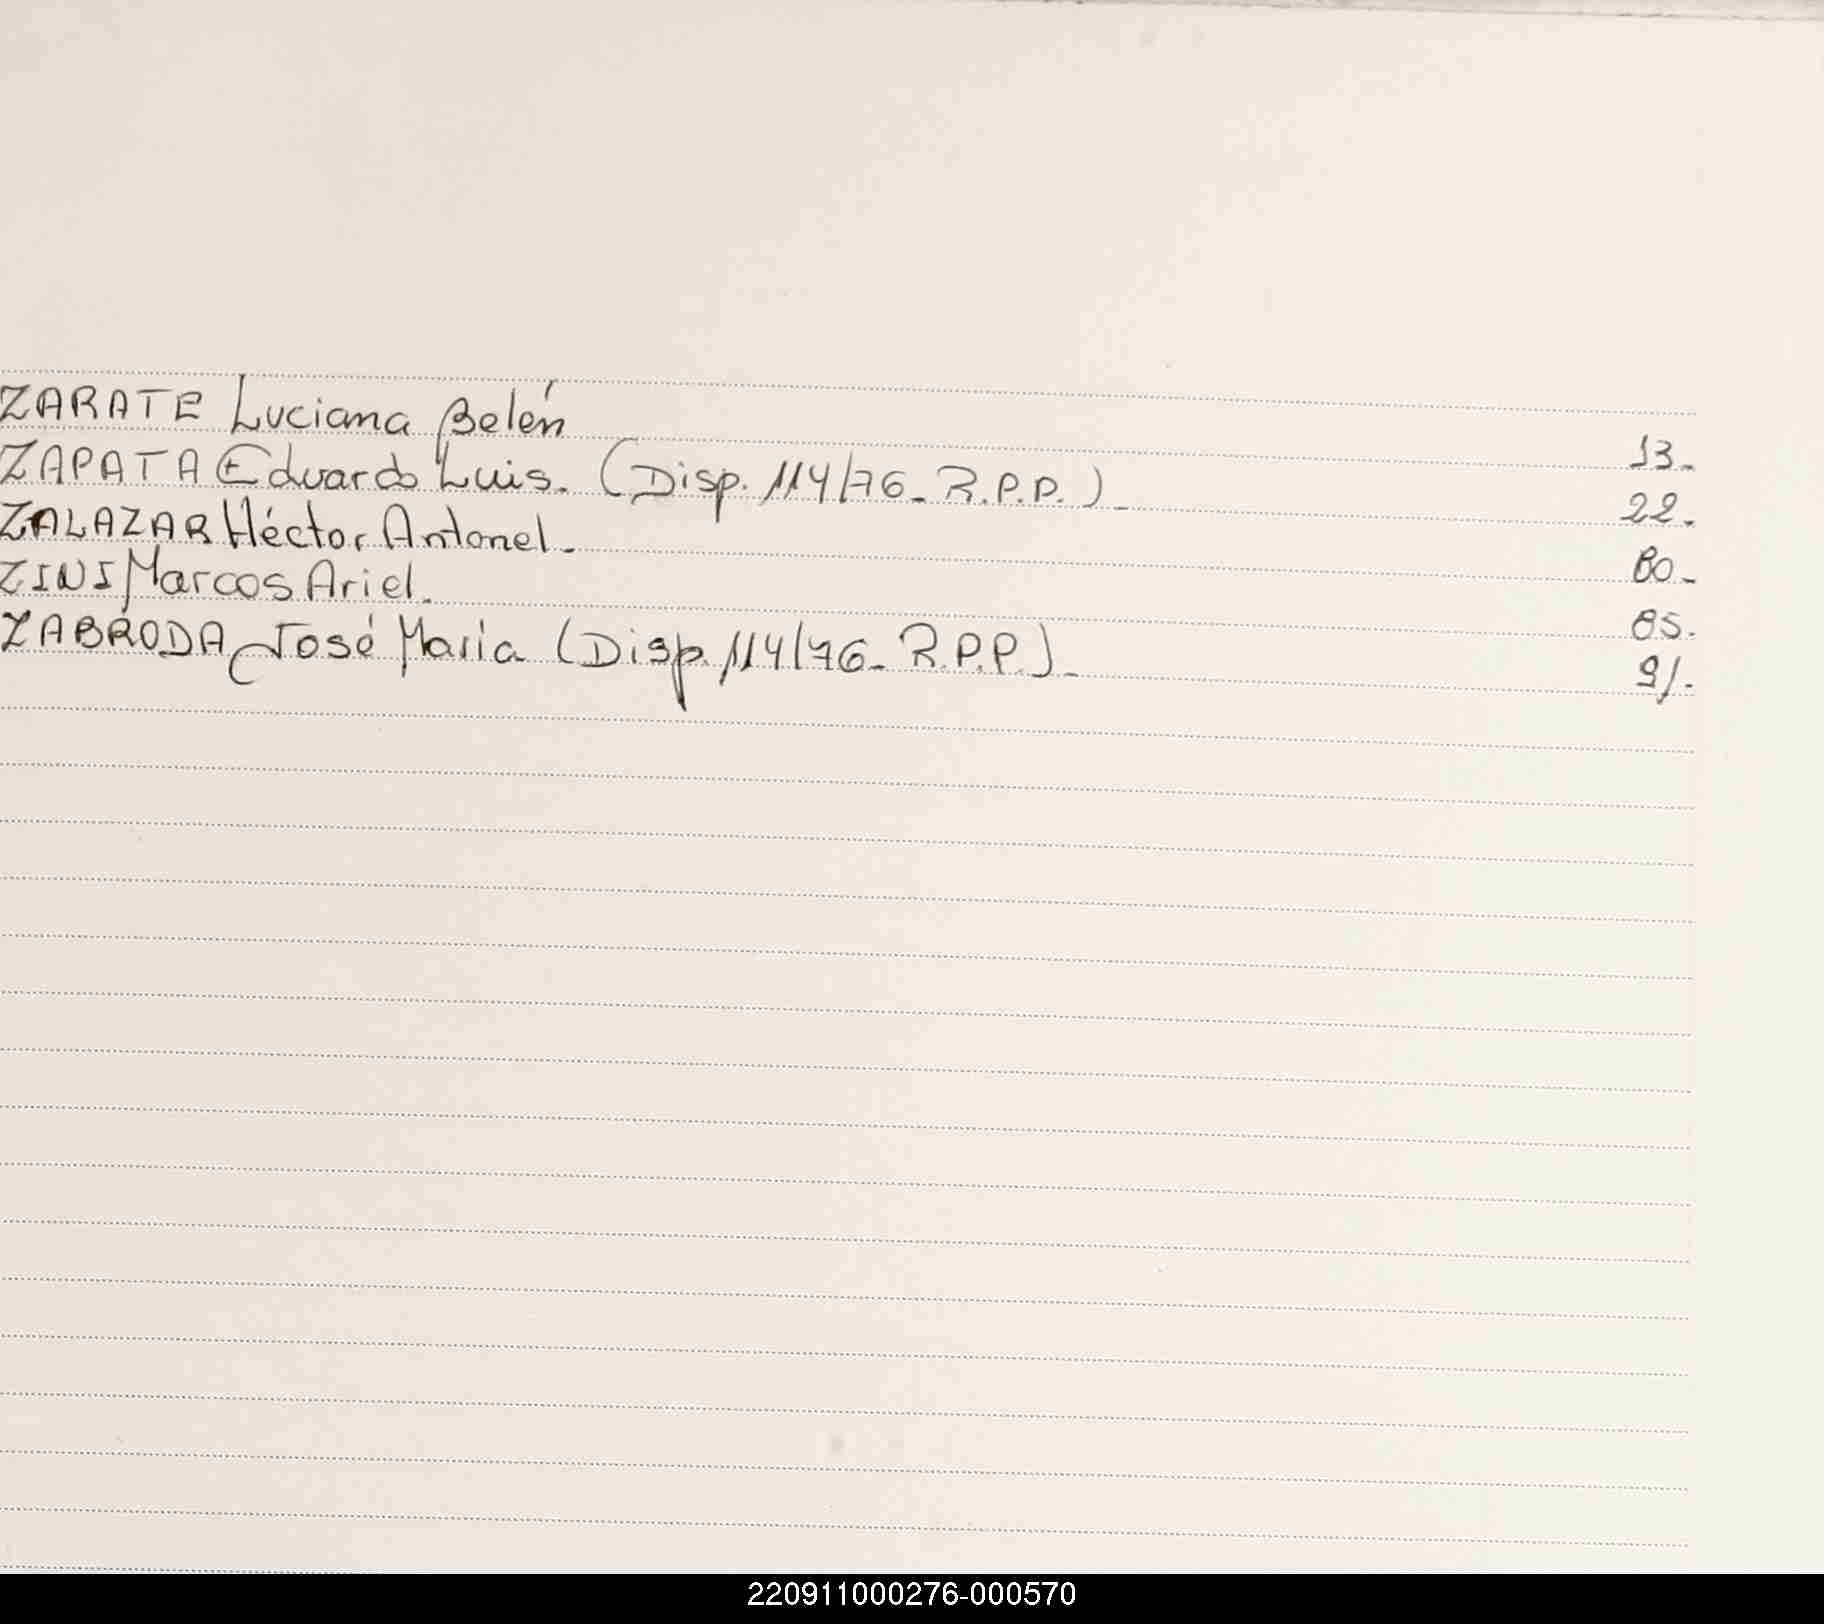 ZARATE Luciana Belén 13.
ZAPATA Eduardo Luis. (Disp. 114/76. R.P.P.) 22.
ZALAZAR Héctor Antonel. 80.
ZINI Marcos Ariel. 85.
ZABRODA José María (Disp. 114/76. R.P.P.) 91.
220911000276-000570